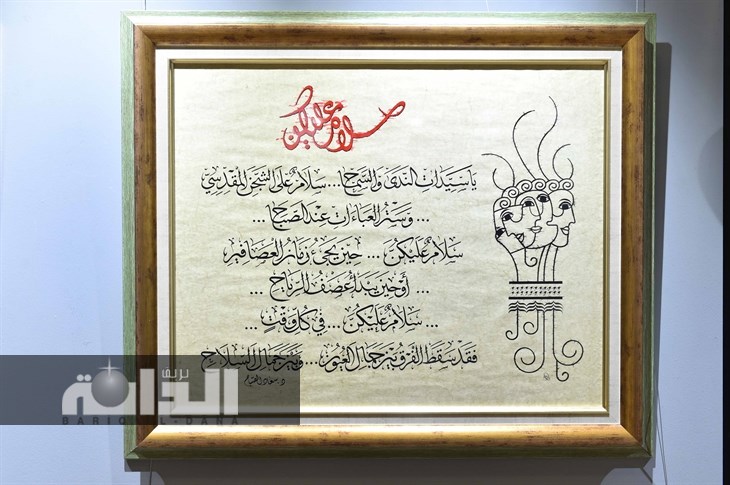 سلام عليكن
يا سيدات الندى والسماح ... سلام على الشجن المقدسي
... وستر العباءات عند الصباح ...
سلام عليكن ... حين يجيء زمان العصافير
... أو حين يبدأ عصف الرياح ...
... سلام عليكن ... في كل وقت
فقد سقط الفرق بين جمال العيون ... وبين جمال السلاح
د. سعاد الصباح
بريق الدانة
BARIQ AL-DARA